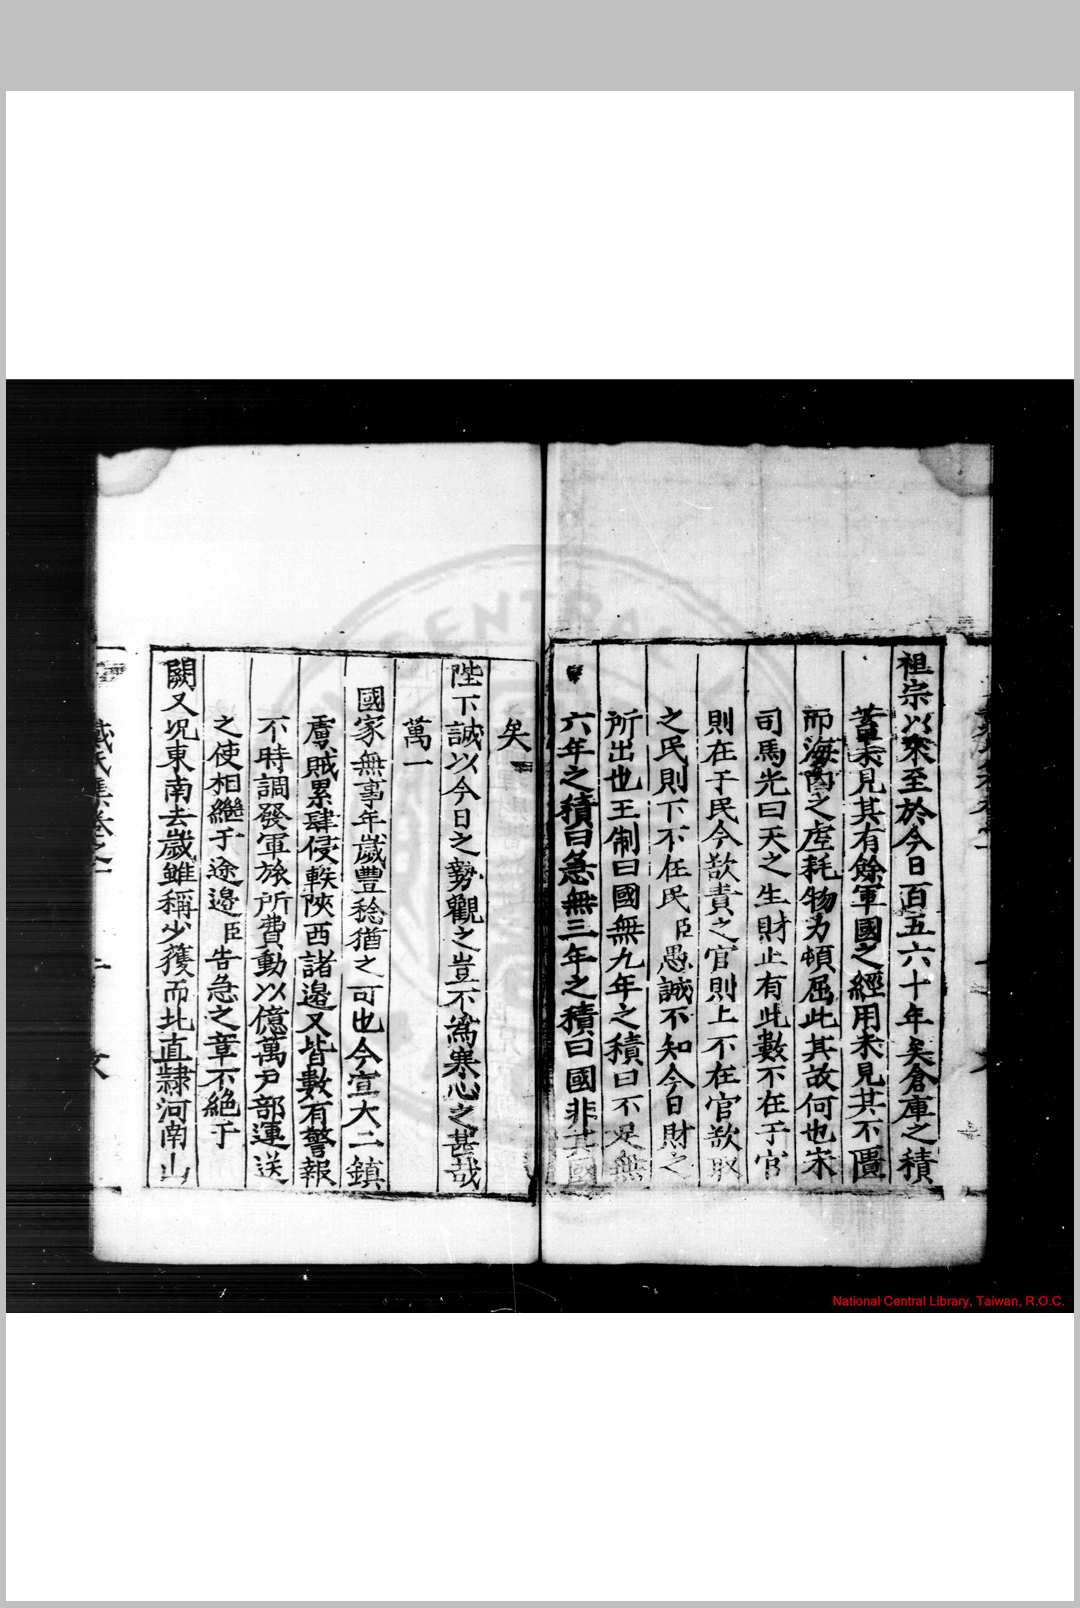 祖宗以來至於今日百五六十年矣倉庫之積
蓄未見其有餘軍國之經用未見其不匱
而海內之虛耗物力頓屈此其故何也宋
司馬光曰天之生財止有此數不在于官
則在于民今欲責之官則上不在官欲取
之民則下不在民臣愚誠不知今日財之
所出也王制曰國無九年之積曰不足無
六年之積曰急無三年之積曰國非其國
矣
陛下誠以今日之勢觀之豈不為寒心之甚哉
萬一
國家無事年歲豐稔猶之可也今宣大二鎮
虜賊累肆侵軼陝西諸邊又皆數有警報
不時調發軍旅所費動以億萬戶部運送
之使相繼于途邊臣告急之章不絕于
闕又况東南去歲雖稱少獲而北直隸河南山
戴氏集卷之
National Central Library, Taiwan, R.O.C.